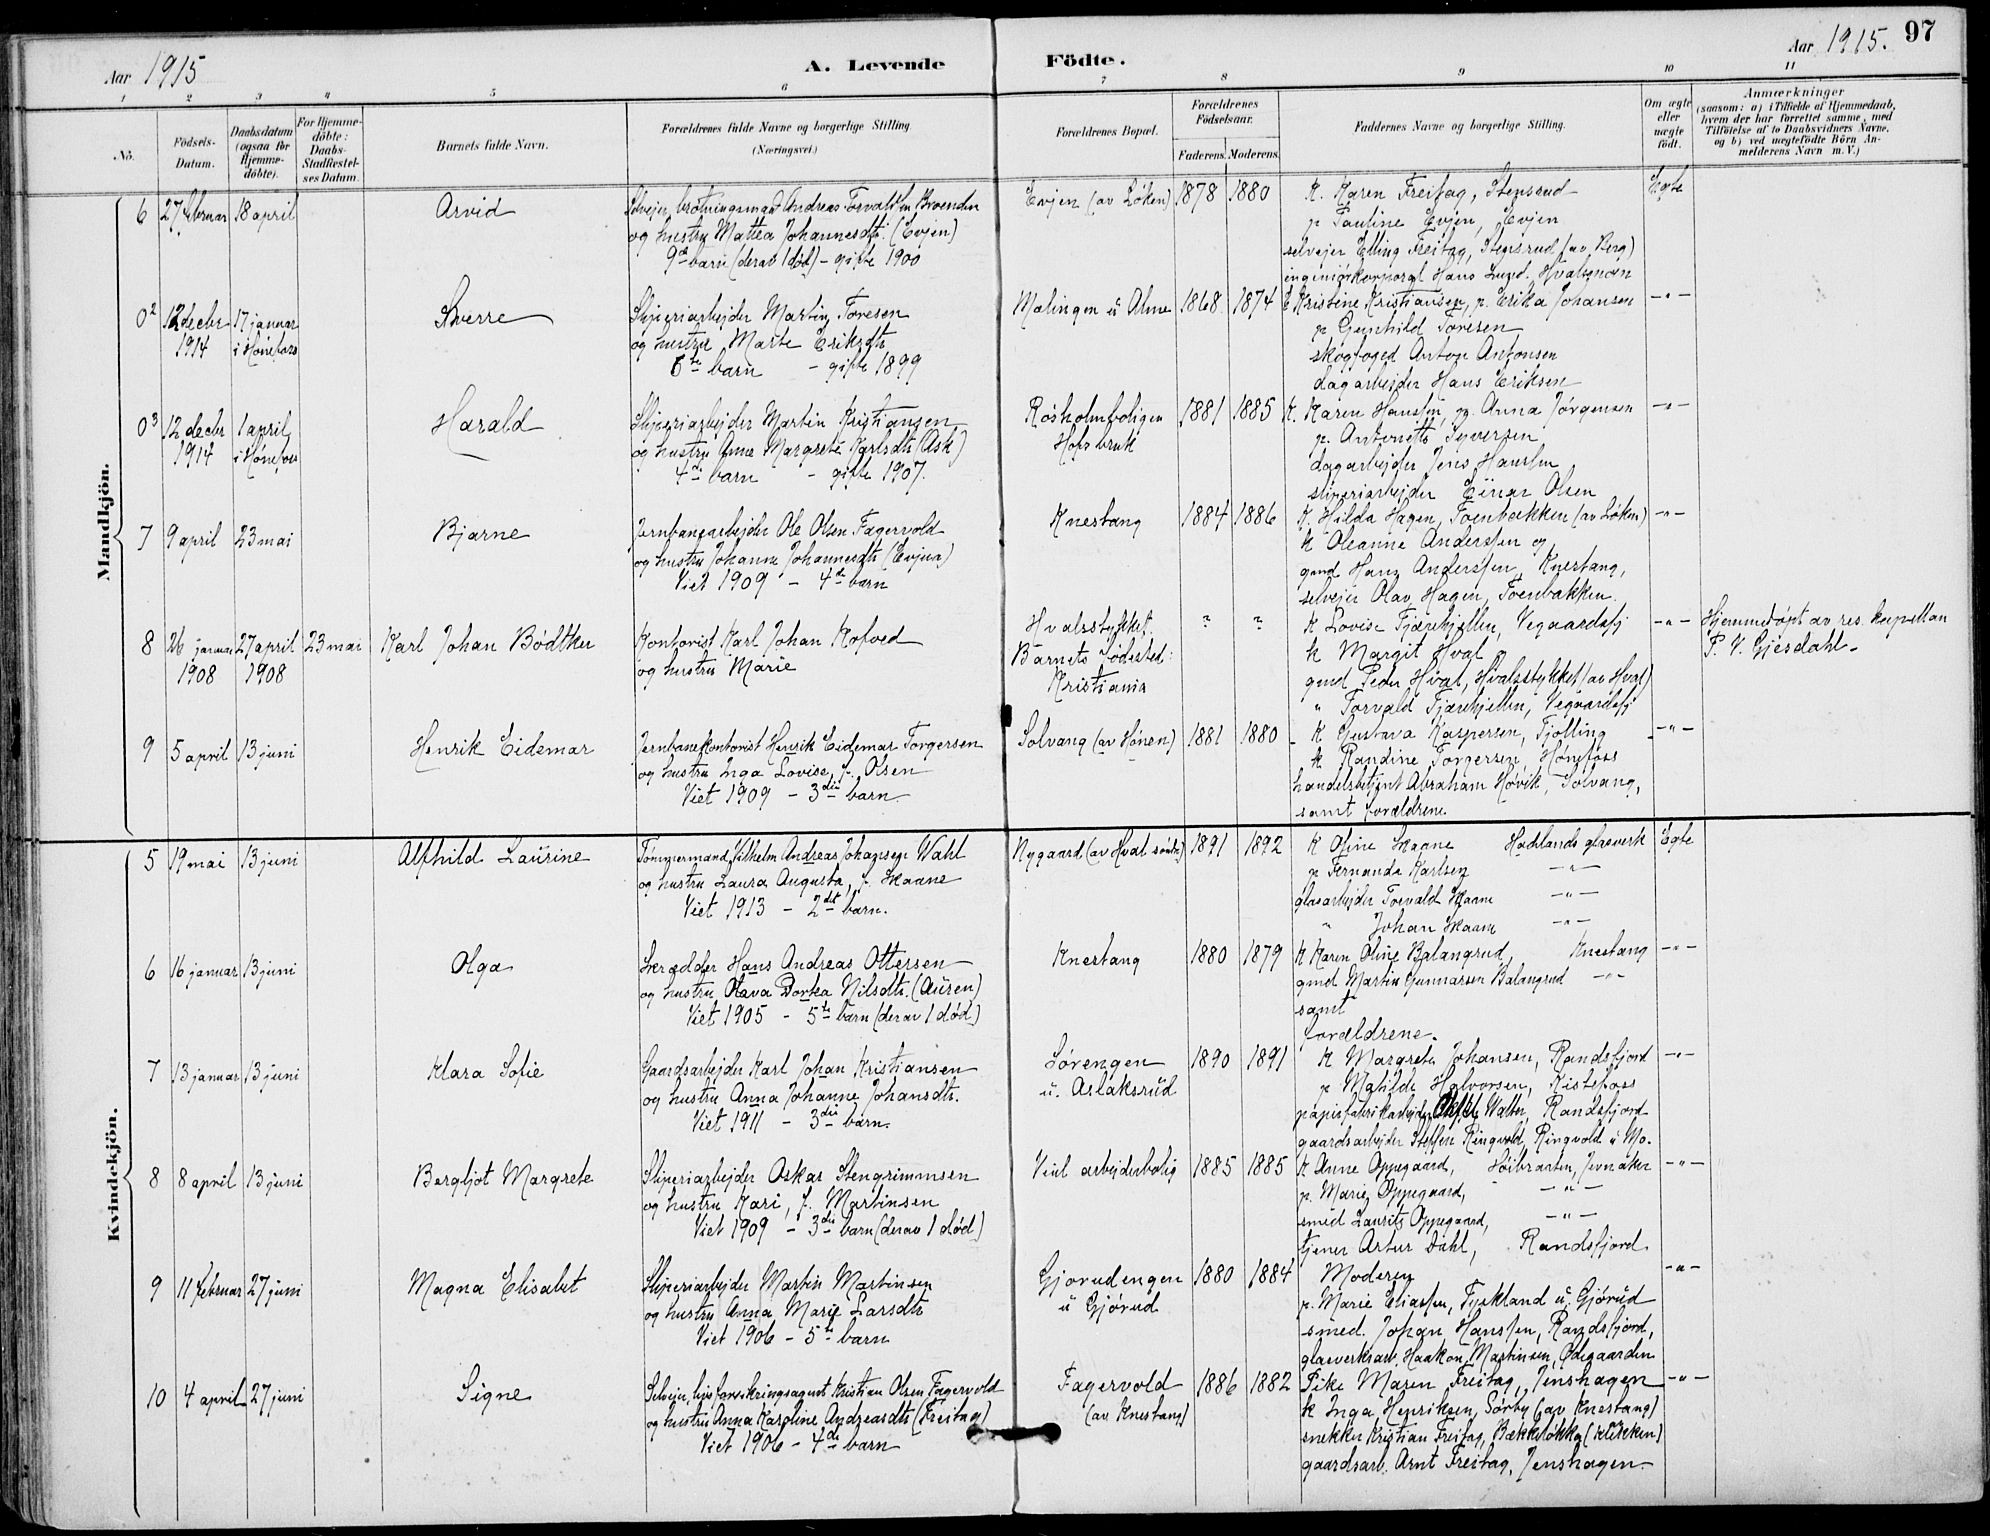 Aar 1915 A. Levende Födte. Aar 1915. 97
1 2 3 4 5 6 7 8 9 10 11
No.
Födsels-Datum.
Daabsdatum (ogsaa for Hjemme-döbte).
For Hjemme-döbte: Daabs-Stadfæstel-ses Datum.
Barnets fulde Navn.
Forældrenes fulde Navne og borgerlige Stilling
(Næringsvei.)
Forældrenes Bopæl.
Forældrenes Födselsaar.
Faderens. Moderens.
Faddernes Navne og borgerlige Stilling.
Om ægte eller uægte födt.
Anmærkninger
(saasom: a) i Tilfælde af Hjemmedaab, hvem der har forrettet samme, med Tilföielse af to Daabsvidners Navne, og b) ved uægtefödte Börn An-melderens Navn m. V.)
Mandkjön.
6 27 februar 18 april Arvid
Selveier, brotningsmand Andreas Torvaldsen
og hustru Mattea Johannesdtr. (Evjen)
9de barn (derav 1 död) - gifte 1900
Evjen (av Løken) 1878 1880
K. Karen Freitag, Stensrud
p Pauline Evjen, Evjen
selvejer Elling Freitag, Stensrud (av Berg)
ingeniørkorporal Hans Hvalsmoen
Egte
02 12 decbr 1914 17 januar i Hønefoss Sverre
Sliperiarbejder Martin Toresen
og hustru Marte Eriksdtr
6te barn - gifte 1899
Malingen u Alme 1868 1874
K Kristine Kristiansen, p. Erika Johansen
p Gunhild Toresen
skogfoged Anton Antonsen
dagarbejder Hans Eriksen
-"-
03 12 decbr 1914 1 april i Hønefoss Harald
Sliperiarbejder Martin Kristiansen
og hustru Anne Margrete Karlsdtr (Ask)
4de barn - gifte 1907.
Røsholmboligen Hofsbruk 1881 1885
K. Karen Hansen, p. Anna Jørgensen
p. Antonette Syversen
dagarbejder Jens Hansen
sliperiarbejder Einar Olsen
-"-
7 9 april 23 mai Bjarne
Jernbanearbejder Ole Olsen Fagervold
og hustru Johanne Johannesdtr (Evjua)
Viet 1909 - 4de barn
Knestang 1884 1886
K. Hilda Hagen, Toenbakken (av Løken)
K Oleanne Anderssen og
gmd Hans Anderssen, Knestang,
selvejer Olav Hagen, Toenbakken.
-"-
8 26 januar 1908 27 april 1908 23 mai Karl Johan Bödtker
Kontorist Karl Johan Kofoed
og hustru Marie
Hvalsstykket.
Barnets fødested:
Kristiania
? ?
K Lovise Tjærehjellen, Vegaardsfj
k Margit Hval
gmd Peder Hval, Hvalsstykket (av Hval)
" Torvald Tjærehjellen, Vegaardsfj
-"-
Hjemmedøpt av res. kapellan
P. V. Gjesdahl.
9 5 april 13 juni Henrik Eidemar
Jernbanekontorist Henrik Eidemar Torgersen
og hustru Inga Lovise, f. Olsen
Viet 1909 - 3die barn.
Solvang (av Hønen) 1881 1880
K Gustava Kaspersen, Tjølling
k Randine Torgersen, Hønefoss
handelsbetjent Abraham Høvik, Solvang,
samt forældrene.
-"-
Kvindekjön.
5 19 mai 13 juni Alfhild Laurine
Tømmermand Vilhelm Andreas Johansen Wahl
og hustru Laura Augusta, f. Skaane
Viet 1913 - 2det barn.
Nygaard (av Hval søndre) 1891 1892
K Oline Skaane Hadelands glasverk
p Fernanda Karlsen -"-
glasarbejder Torvald Skaane -"-
" Johan Skaane -"-
Egte
6 16 januar 13 juni Olga
Skrædder Hans Andreas Ottersen
og hustru Olava Dortea Nilsdtr. (Auren)
Viet 1905 - 5te barn (derav 1 død)
Knestang 1880 1879
K Karen Oline Balangrud, Knestang
gmd Martin Gunnarsen Balangrud -"-
samt
forældrene.
-"-
7 13 januar 13 juni Klara Sofie
Gaardsarbejder Karl Johan Kristiansen
og hustru Anna Johanne Johansdtr.
Viet 1911 - 3die barn.
Sørengen
u. Aslaksrud
1890 1891
K Margrete Johansen, Randsfjord
p Matilde Halvorsen, Kistefoss
papirfabrikarbejder Walter, Randsfjord
gaardsarbejder Steffen Ringvold, Ringvold u Mo.
-"-
8 8 april 13 juni Bergljot Margrete
Sliperiarbejder Oskar Stengrimmsen
og hustru Kari, f. Martinsen
Viet 1909 - 3die barn (derav 1 død)
Viul arbejderbolig 1885 1885
K Anne Oppegaard, Høibraaten, Jevnaker
p. Marie Oppegaard, -"-
smed Laurits Oppegaard, -"-
tjener Artur Dahl, Randsfjord
-"-
9 11 februar 27 juni Magna Elisabet
Sliperiarbejder Martin Martinsen
og hustru Anna Marie Larsdtr
Viet 1906 - 5te barn
Gjørudengen
u Gjørud
1880 1884
Moderen
p. Marie Eliassen, Tyskland u. Gjørud
smed. Johan Hanssen, Randsfjord,
glasverksarb. Haakon Martinsen, Ødegaarden
-"-
10 4 april 27 juni Signe
Selvejer, livsforsikringsagent Kristian Olsen Fagervold
og hustru Anna Karoline Andreasdtr (Freitag)
Viet 1906 - 4de barn
Fagervold
(av Knestang)
1886 1882
Pike Maren Freitag, Jenshagen
k Inga Henriksen, Sørby (av Knestang)
snekker Kristian Freitag, Bækkeløkka (Klækken)
gaardsarb. Arnt Freitag, Jenshagen.
-"-